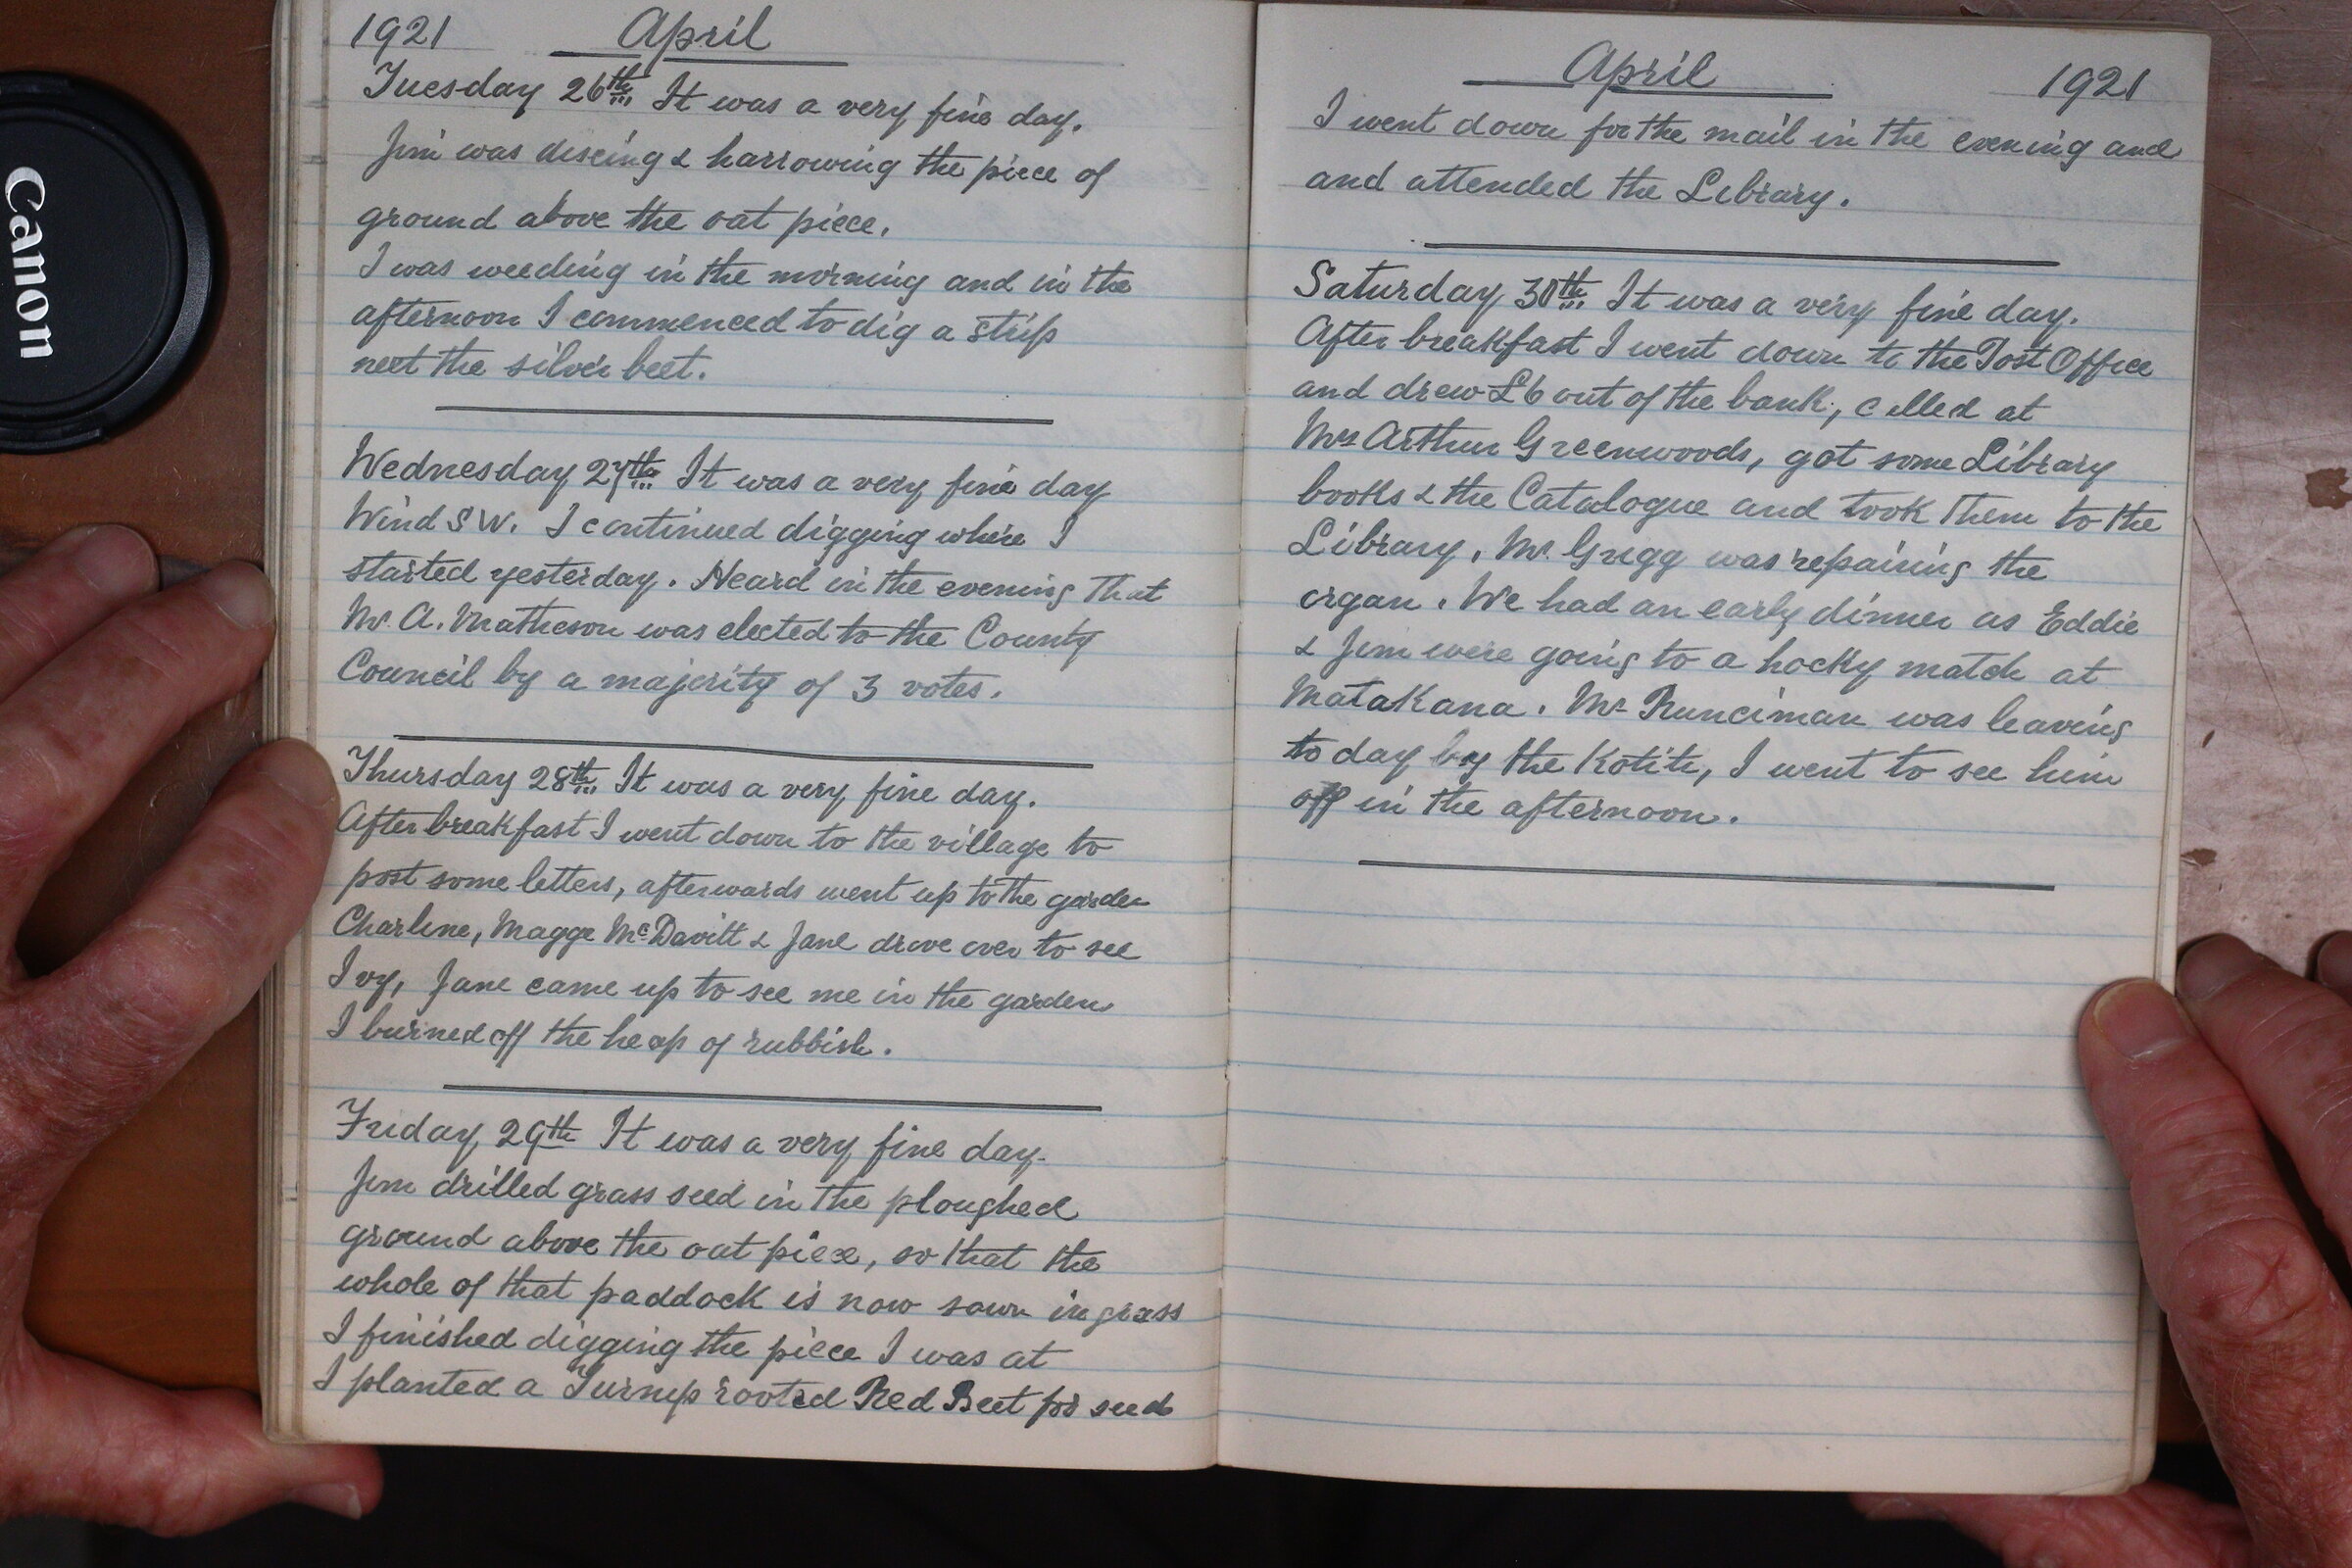 Canon
1921 April
Tuesday 26th It was a very fine day.
Jim was discing & harrowing the piece of
ground above the oat piece.
I was weeding in the morning and in the
afternoon I commenced to dig a strip
next the silver beet.
Wednesday 27th It was a very fine day
Wind SW. I continued digging where I
started yesterday. Heard in the evening that
Mr. A. Matheson was elected to the County
Council by a majority of 3 votes.
Thursday 28th It was a very fine day.
After breakfast I went down to the village to
post some letters, afterwards went up to the garden
Charline, Magge McDavitt & Jane drove over to see
Ivy, Jane came up to see me in the garden
I burned off the heap of rubbish.
Friday 29th It was a very fine day.
Jim drilled grass seed in the ploughed
ground above the oat piece, so that the
whole of that paddock is now sown in grass
I finished digging the piece I was at
I planted a Turnip rooted Red Beet for seed
April 1921
I went down for the mail in the evening and
and attended the Library.
Saturday 30th It was a very fine day.
After breakfast I went down to the Post Office
and drew £6 out of the bank, called at
Mrs Arthur Greenwoods, got some Library
books & the Catalogue and took them to the
Library. Mr. Grigg was repairing the
organ. We had an early dinner as Eddie
& Jim were going to a hocky match at
Matakana. Mr Runciman was leaving
to day by the Kotiti, I went to see him
off in the afternoon.